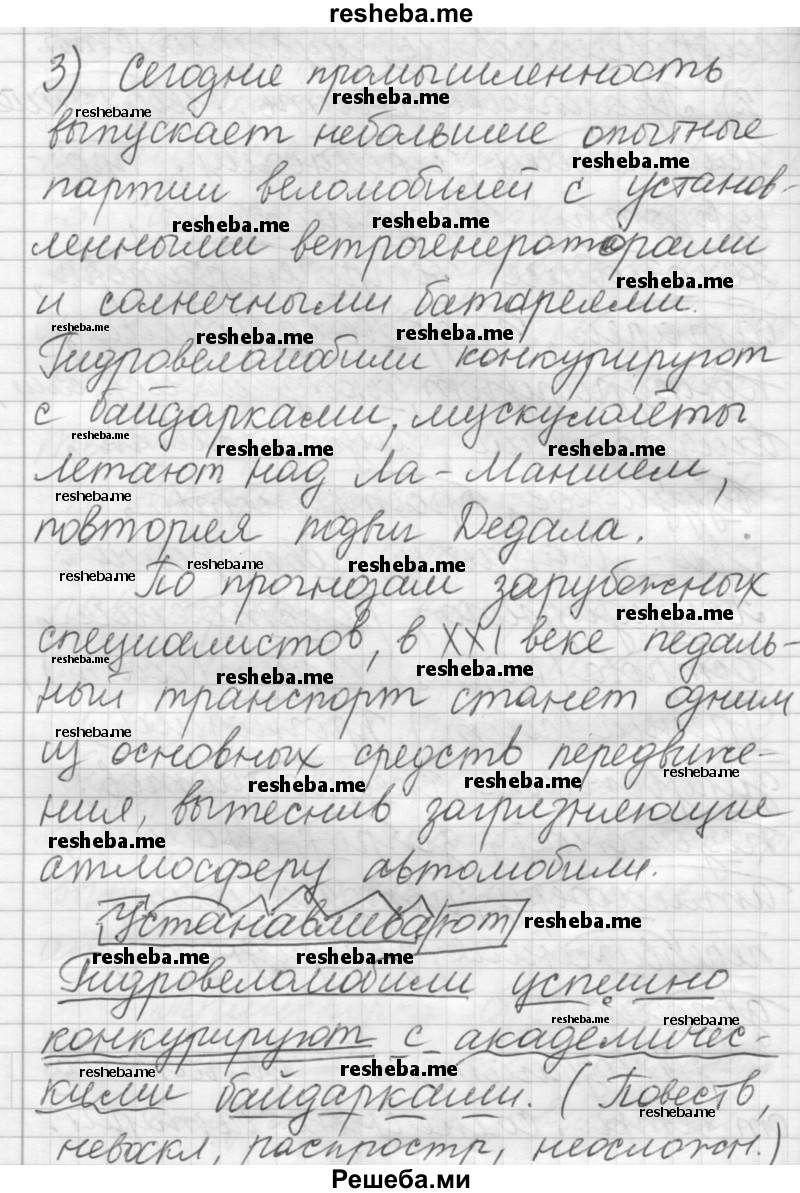 resheba.me
3) Сегодня промышленность
выпускает небольшие опытные
партии веломобилей с установ-
ленными ветрогенераторами
и солнечными батареями.
Гидровеломобили конкурируют
с байдарками, мускулолёты
летают над Ла-Маншем,
повторяя подвиг Дедала.
По прогнозам зарубежных
специалистов, в XXI веке педаль-
ный транспорт станет одним
из основных средств передвиже-
ния, вытеснив загрязняющие
атмосферу автомобили.
Устанавливают
Гидровеломобили успешно
конкурируют с академичес-
кими байдарками. (Повеств,
невоскл, распростр, неосложн.)
Решеба.ми